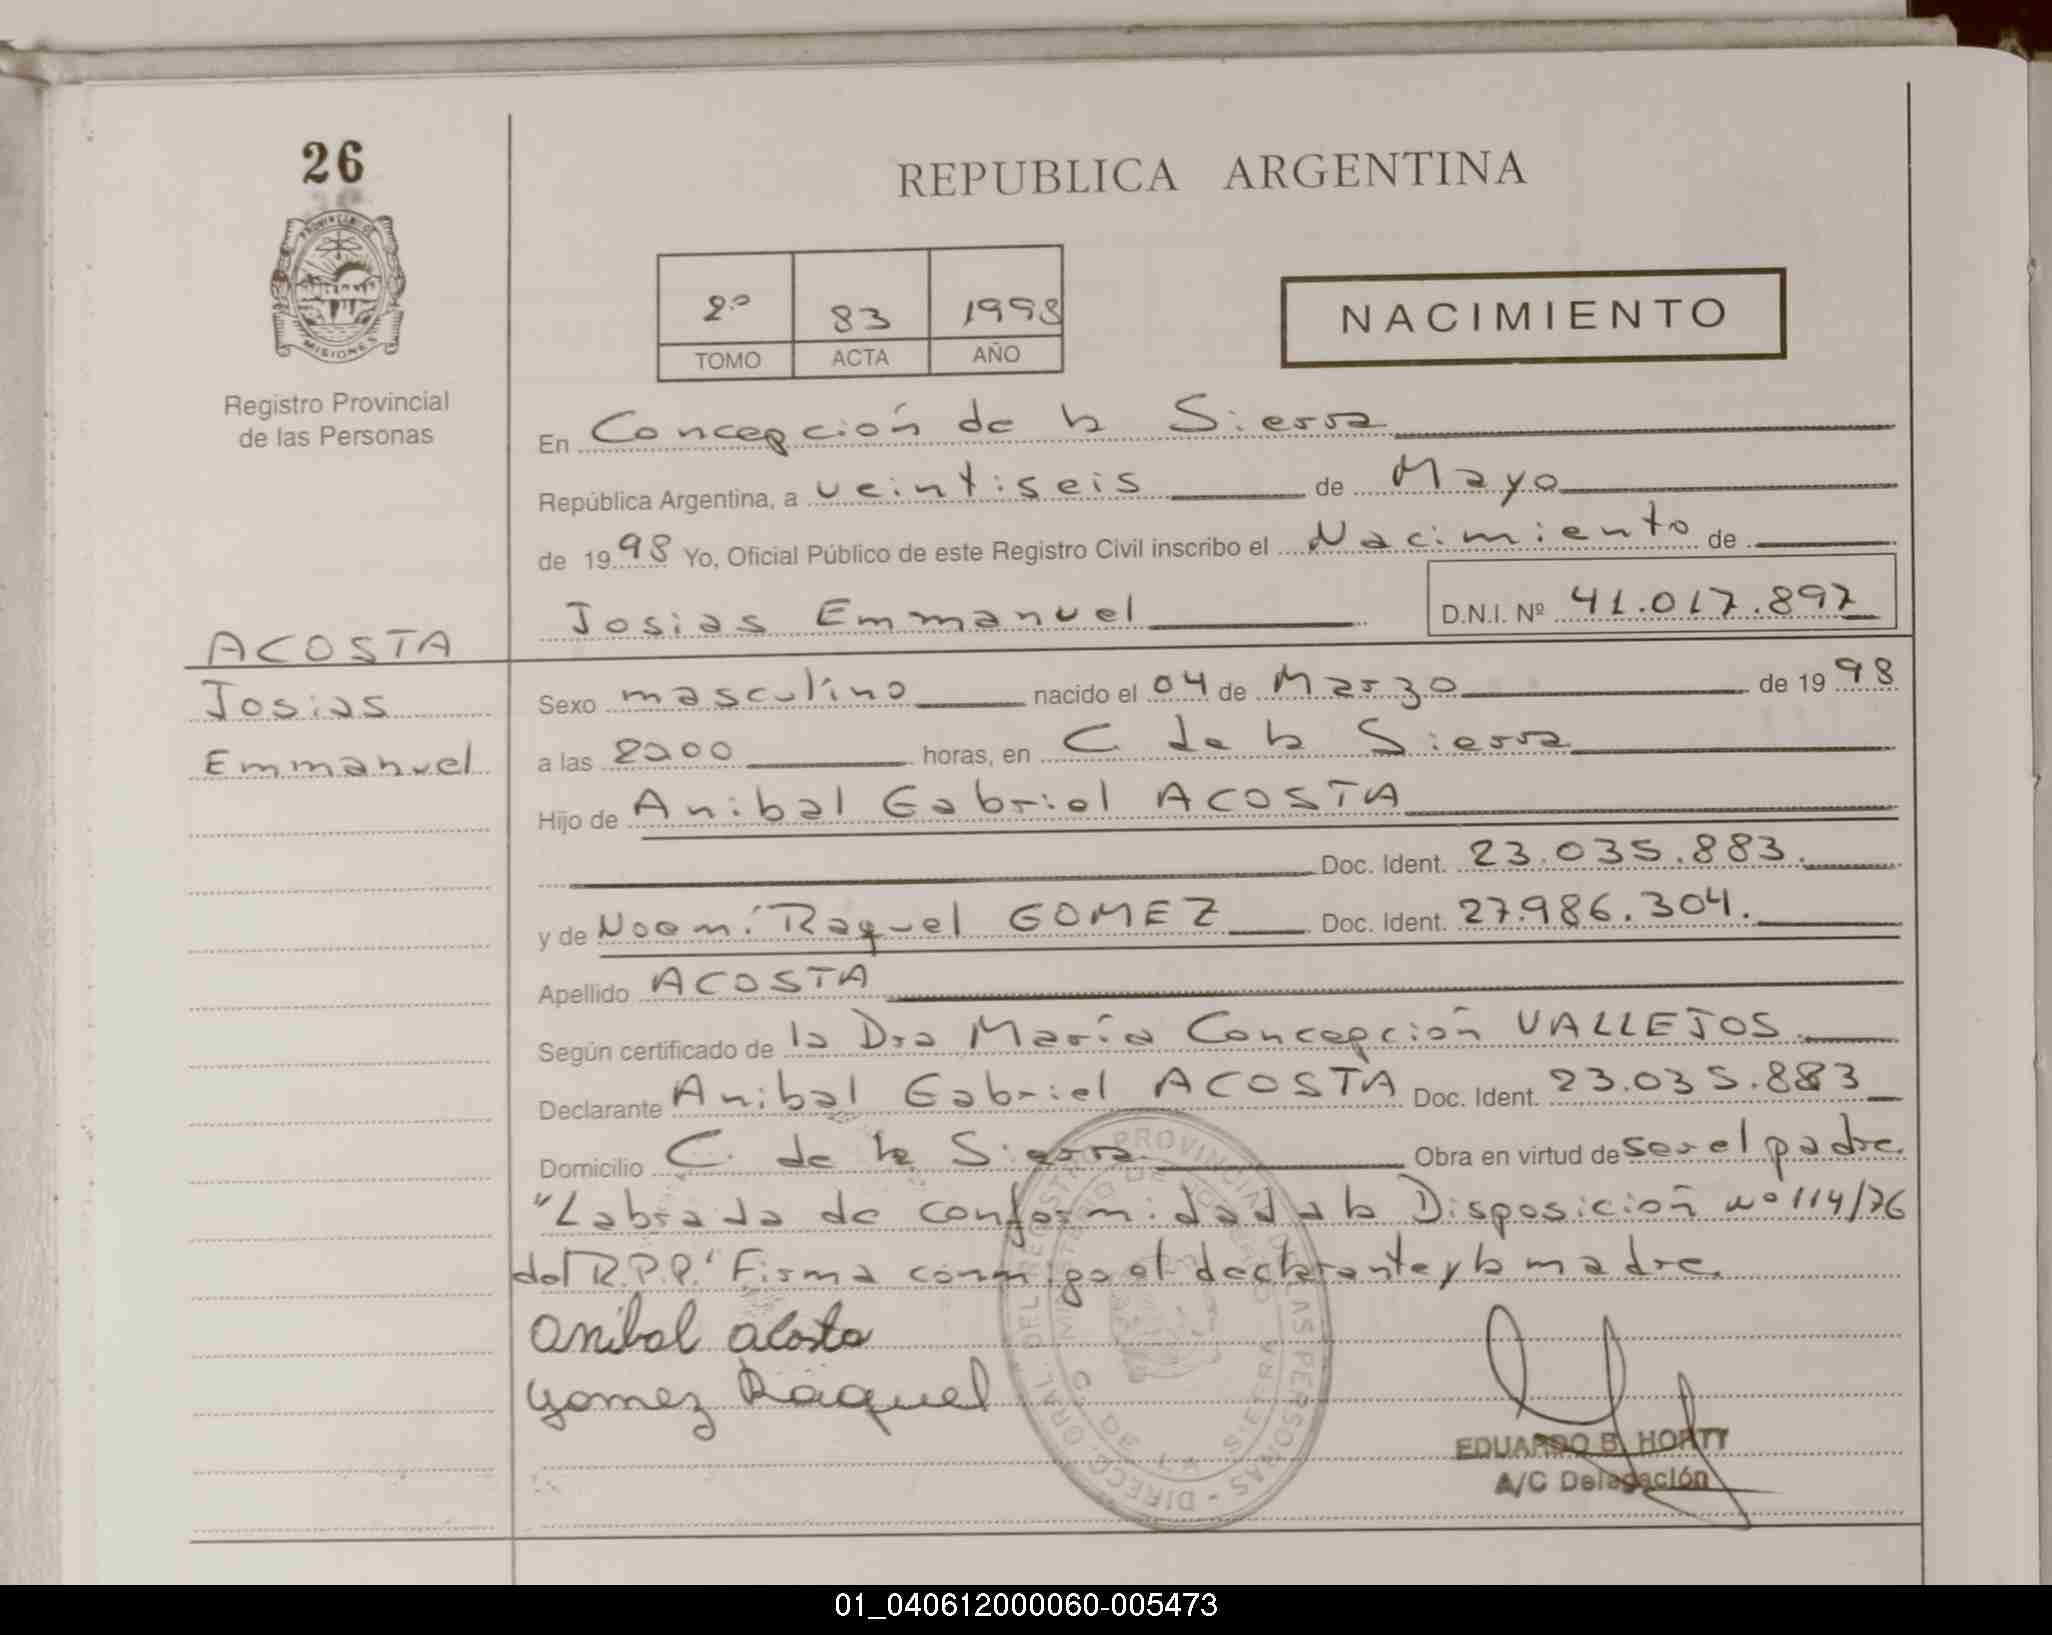 26
PROVINCIA DE
MISIONES
Registro Provincial
de las Personas
ACOSTA
Josias
Emmanuel
REPUBLICA ARGENTINA
2º 83 1998
TOMO ACTA AÑO
NACIMIENTO
En Concepción de la Sierra
República Argentina, a veintiseis de Mayo
de 1998 Yo, Oficial Público de este Registro Civil inscribo el Nacimiento de
Josias Emmanuel D.N.I. Nº 41.017.897
Sexo masculino nacido el 04 de Marzo de 1998
a las 2200 horas, en C. de la Sierra
Hijo de Anibal Gabriel ACOSTA
Doc. Ident. 23.035.883.
y de Noemí Raquel GOMEZ Doc. Ident. 27.986.304.
Apellido ACOSTA
Según certificado de la Dra María Concepción VALLEJOS.
Declarante Anibal Gabriel ACOSTA Doc. Ident. 23.035.883
Domicilio C. de la Sierra Obra en virtud de ser el padre.
"Labrada de conformidad a la Disposición Nº 114/76
del R.P.P." Firma conmigo el declarante y la madre.
Anibal Acosta
Gomez Raquel
DIRECC. GRAL. DEL REGISTRO PROVINCIAL DE LAS PERSONAS -
MINISTERIO DE GOBIERNO
C. DE LA SIERRA
EDUARDO B. HORTT
A/C Delegación
01_040612000060-005473